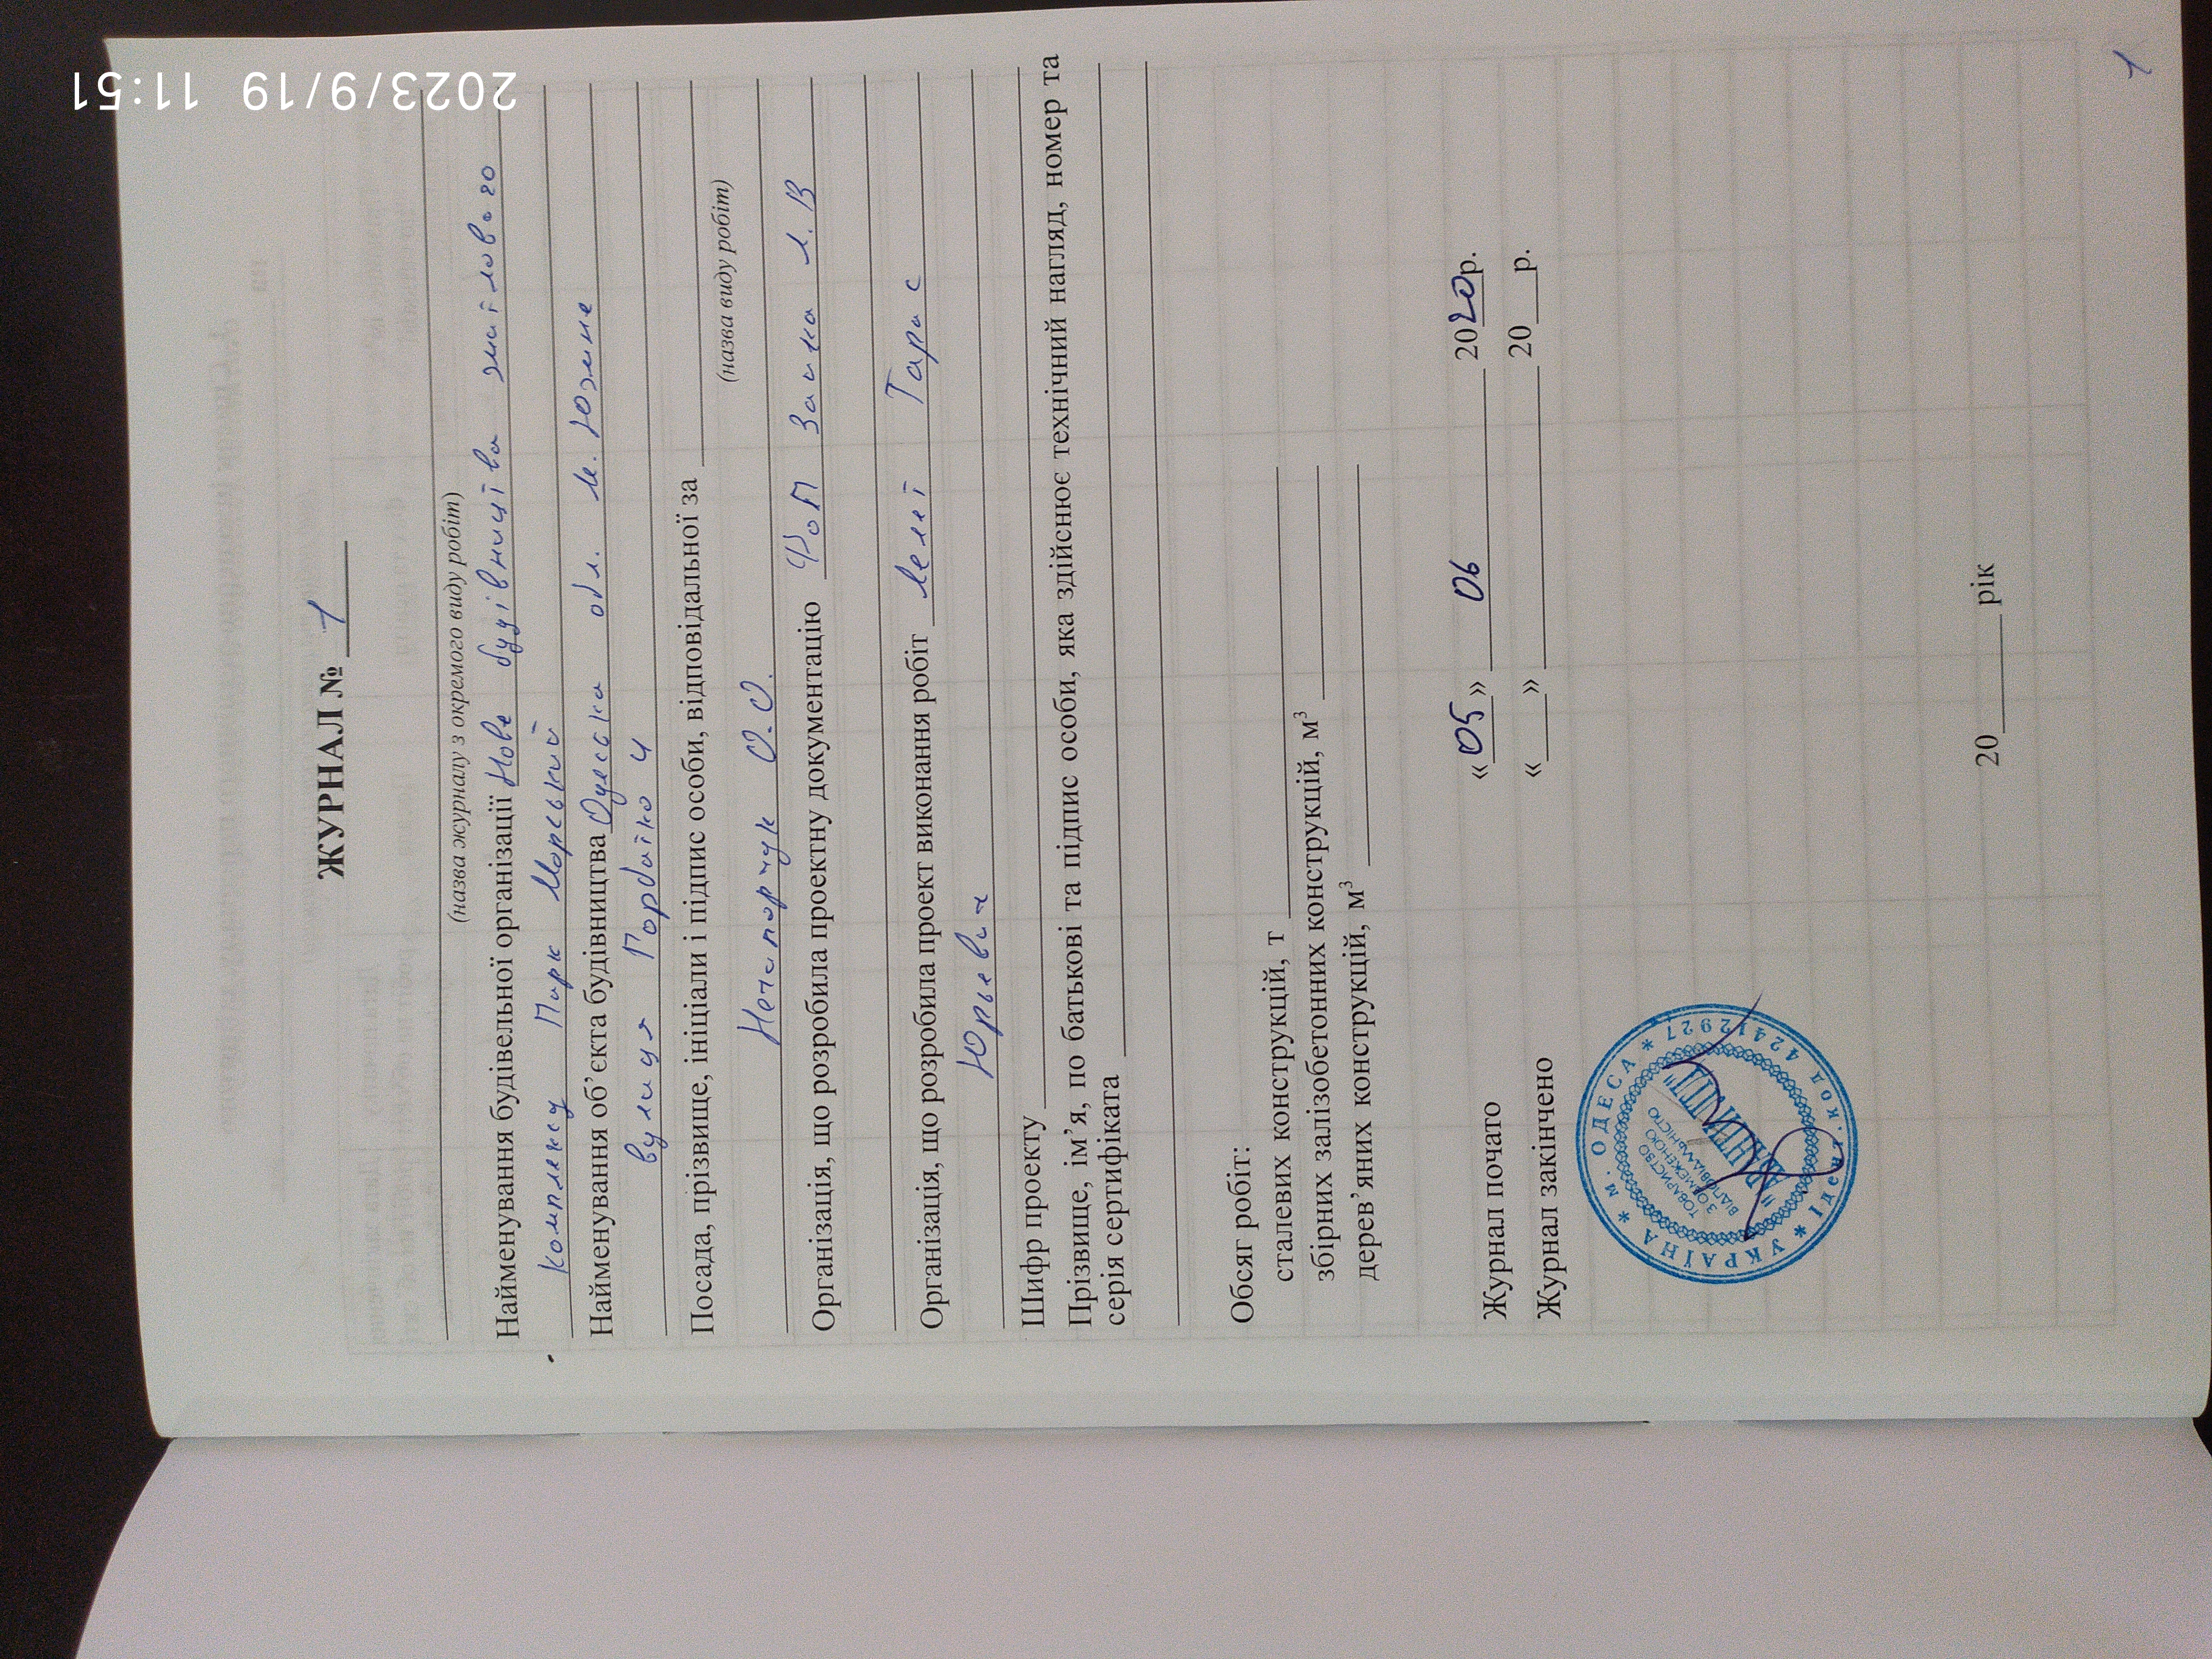 2023/9/19 11:51
ЖУРНАЛ № 1
(назва журналу з окремого виду робіт)
Найменування будівельної організації Нове будівництва житлового
комплексу Парк Морський
Найменування об’єкта будівництва Одеська обл. м. Южне
вулиця 4
Посада, прізвище, ініціали і підпис особи, відповідальної за
(назва виду робіт)
Нечипорчук О.О.
Організація, що розробила проектну документацію ФОП Заика Л.В
Організація, що розробила проект виконання робіт Тарас
Юрьевич
Шифр проекту
Прізвище, ім’я, по батькові та підпис особи, яка здійснює технічний нагляд, номер та
серія сертифіката
Обсяг робіт:
сталевих конструкцій, т
збірних залізобетонних конструкцій, м³
дерев’яних конструкцій, м³
Журнал почато «05» 06 2020р.
Журнал закінчено «___» 20___р.
УКРАЇНА * м. ОДЕСА * Ідент.код 42412927 *
ТОВАРИСТВО
З ОБМЕЖЕНОЮ
ВІДПОВІДАЛЬНІСТЮ
20___ рік
1